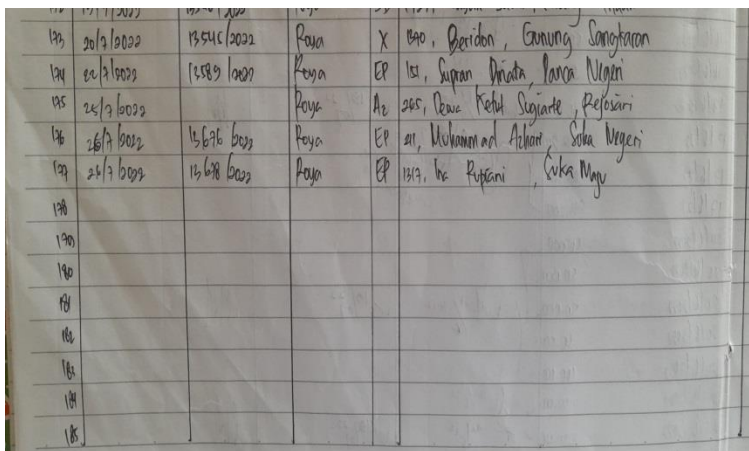 173 20/7/2022 13546/2022 Roya X 1340, Beridon, Gunung Sangkaran
174 22/7/2022 13589/2022 Roya EP 151, Supran Dinata, Panca Negeri
175 25/7/2022 Roya Az 245, Dewa Ketut Sugiarte, Rejosari
176 26/7/2022 13676/2022 Roya EP 211, Muhammad Azhari, Suka Negeri
177 26/7/2022 13678/2022 Roya EP 1317, Rupiani, Suka Maju
178
179
180
181
182
183
184
185